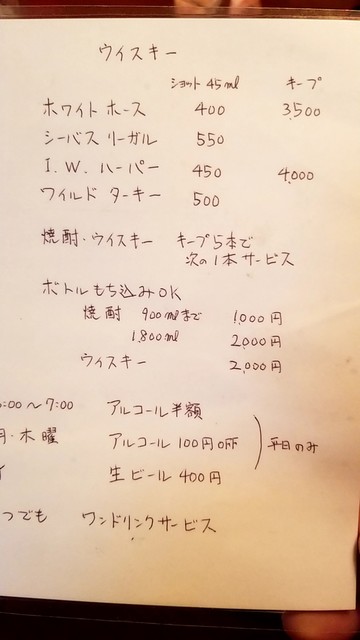 ウイスキー
ショット 45ml キープ
ホワイト ホース 400 3,500
シーバス リーガル 550
I.W. ハーパー 450 4,000
ワイルド ターキー 500
焼酎・ウイスキー キープ5本で
次の1本サービス
ボトルもち込みOK
焼酎 900mlまで 1,000円
1,800ml 2,000円
ウイスキー 2,000円
:00〜7:00 アルコール半額
・木曜 アルコール 100円OFF 平日のみ
生ビール 400円
つでも ワンドリンクサービス